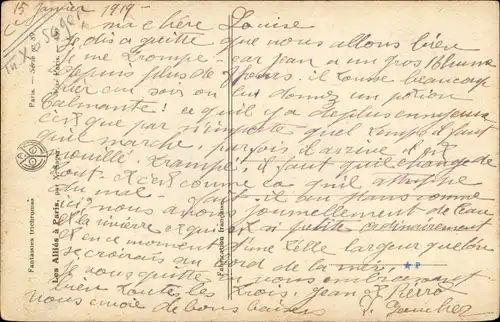 15 Janvier 1919 -
ma chère Louise
Je dis a quitte que nous allons bien
je me trompe - car Jean a un gros Rhume
depuis plus de jours. il tousse beaucoup
hier au soir on lui donnez un potion
Calmante! ce qu'il y a de plus ennuyeux
c'est que par n'importe quel temps il faut
qu'il marche, parfois il arrive
mouillé. trempé. il faut qu'il change de
tout - et c'est comme ça qu'il attrappe
du mal -
ici nous avons journellement de l'eau
et la rivière et qui est si petite ordinairement
est en ce moment d'une telle largeur que l'on
se croirais au bord de la mer.
Je vous quitte en vous embrassant
bien toutes les trois. Jean et Pierre
vous envoie de bons baisers
Fantaisies trichromes
Les Alliés à Paris
Fabrication française
Paris. — Série 89
★ P